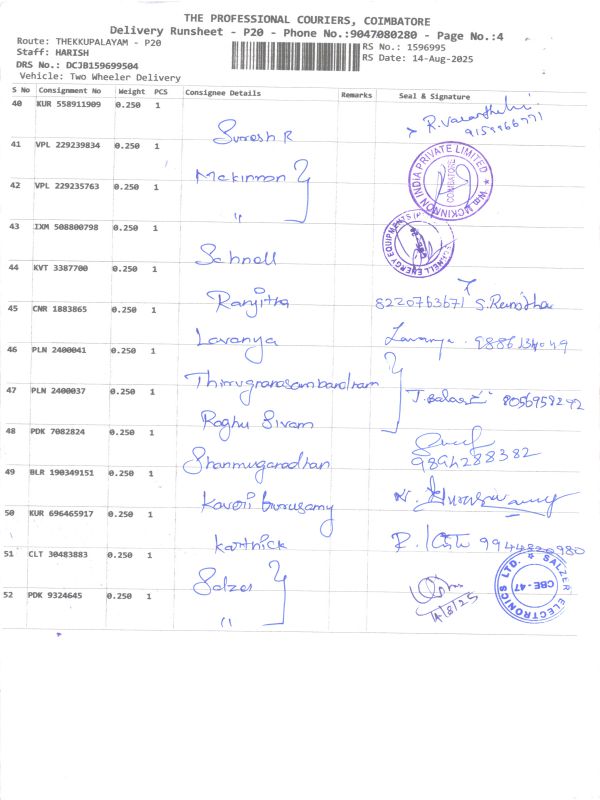 THE PROFESSIONAL COURIERS, COIMBATORE
Delivery Runsheet - P20 - Phone No.:9047080280 - Page No.:4
Route: THEKKUPALAYAM - P20
RS No.: 1596995
Staff: HARISH
RS Date: 14-Aug-2025
DRS No.: DCJB159699504
Vehicle: Two Wheeler Delivery
S No Consignment No Weight PCS Consignee Details Remarks Seal & Signature
40 KUR 558911909 0.250 1 Suresh R
41 VPL 229239834 0.250 1 Mckinnon
MCKINNON INDIA PRIVATE LIMITED
COIMBATORE
42 VPL 229235763 0.250 1 "
43 IXM 508800798 0.250 1 Schnell
ENERGY EQUIPMENTS
44 KVT 3387700 0.250 1 Ranjitha 8220763671
45 CNR 1883865 0.250 1 Lavanya Lavanya
46 PLN 2400041 0.250 1 Thirugnanasambandham
47 PLN 2400037 0.250 1 Raghu Sivam 8056959242
48 PDK 7082824 0.250 1 Shanmuganadhan 9894288382
49 BLR 190349151 0.250 1 Kaveri Gurusamy
50 KUR 696465917 0.250 1 Karthick 9944820980
51 CLT 30483883 0.250 1 Salzer
SALZER ELECTRONICS LTD.
CBE-47
52 PDK 9324645 0.250 1 "
14/8/25